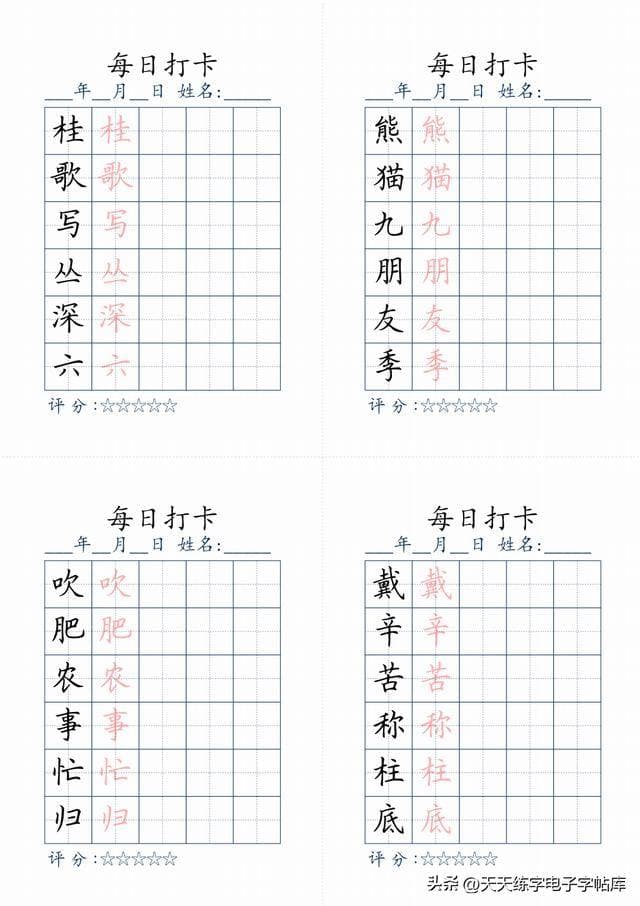 每日打卡
___年__月__日 姓名:_____
桂 桂
歌 歌
写 写
丛 丛
深 深
六 六
评分:☆☆☆☆☆
每日打卡
___年__月__日 姓名:_____
熊 熊
猫 猫
九 九
朋 朋
友 友
季 季
评分:☆☆☆☆☆
每日打卡
___年__月__日 姓名:_____
吹 吹
肥 肥
农 农
事 事
忙 忙
归 归
评分:☆☆☆☆☆
每日打卡
___年__月__日 姓名:_____
戴 戴
辛 辛
苦 苦
称 称
柱 柱
底 底
评分:☆☆☆☆☆
头条 @天天练字电子字帖库